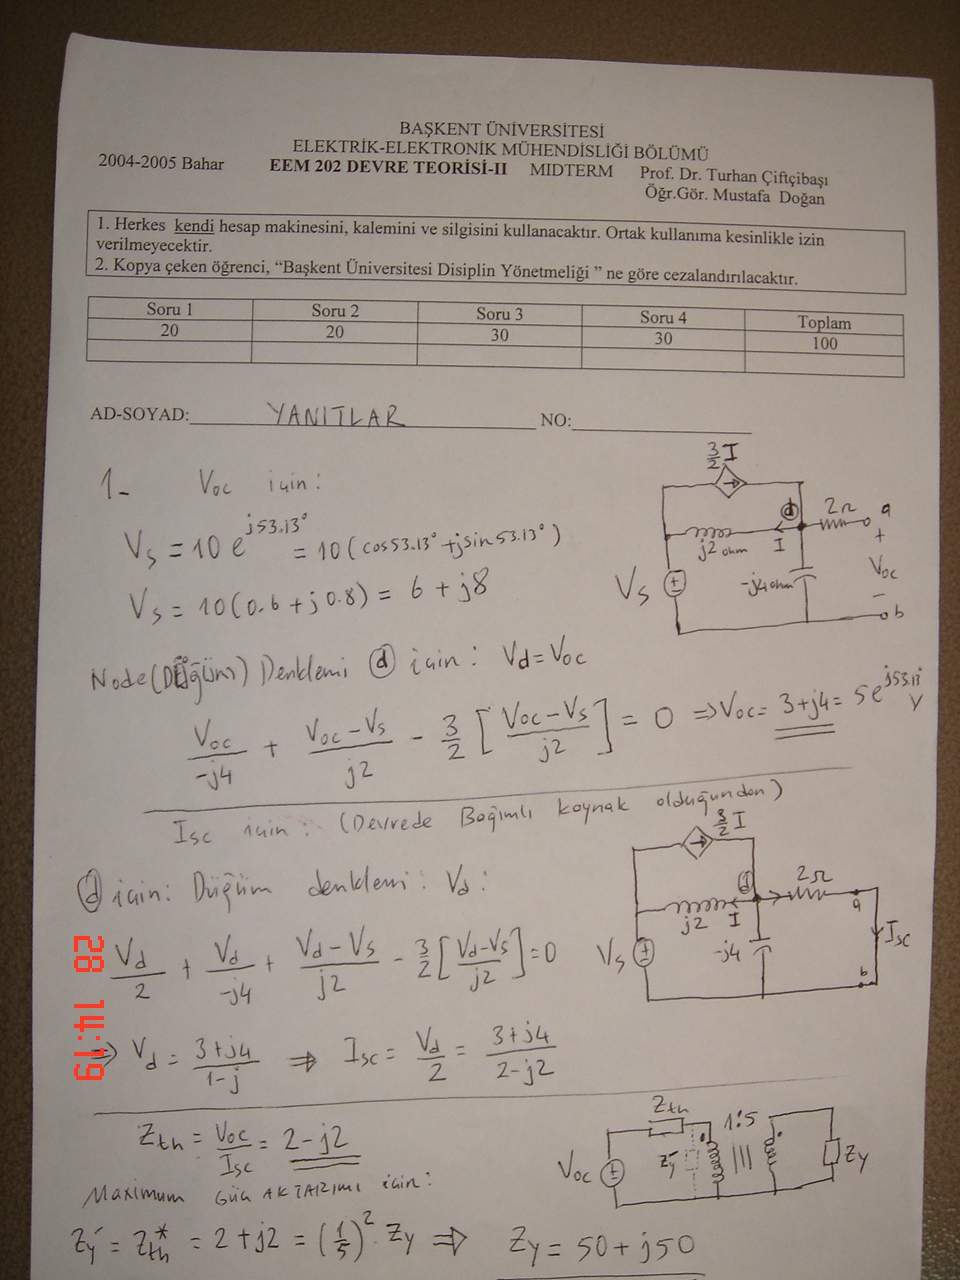 BAŞKENT ÜNİVERSİTESİ
ELEKTRİK-ELEKTRONİK MÜHENDİSLİĞİ BÖLÜMÜ
2004-2005 Bahar EEM 202 DEVRE TEORİSİ-II MIDTERM Prof. Dr. Turhan Çiftçibaşı
Öğr.Gör. Mustafa Doğan
1. Herkes kendi hesap makinesini, kalemini ve silgisini kullanacaktır. Ortak kullanıma kesinlikle izin
verilmeyecektir.
2. Kopya çeken öğrenci, “Başkent Üniversitesi Disiplin Yönetmeliği ” ne göre cezalandırılacaktır.
Soru 1 Soru 2 Soru 3 Soru 4 Toplam
20 20 30 30 100
AD-SOYAD: YANITLAR NO:
1- Voc için:
Vs = 10 e^j53.13° = 10(cos53.13° + jsin53.13°)
Vs = 10(0.6 + j0.8) = 6 + j8
3/2 I
d
2Ω
a
j2 ohm
I
+
Vs
-j4 ohm
Voc
-
b
Node (Düğüm) Denklemi (d) için: Vd = Voc
Voc/-j4 + (Voc-Vs)/j2 - 3/2 [(Voc-Vs)/j2] = 0 ⇒ Voc = 3+j4 = 5e^j53.13 V
Isc için: (Devrede Bağımlı kaynak olduğundan)
(d) için: Düğüm denklemi: Vd:
Vd/2 + Vd/-j4 + (Vd-Vs)/j2 - 3/2 [(Vd-Vs)/j2] = 0
3/2 I
d
2Ω
a
j2
I
Vs
-j4
Isc
b
⇒ Vd = (3+j4)/(1-j) ⇒ Isc = Vd/2 = (3+j4)/(2-j2)
28 14:19
Zth = Voc/Isc = 2-j2
Zth
1:5
Voc
Zy'
Zy
Maximum Güç AKTARIMI için:
Zy' = Zth* = 2+j2 = (1/5)² Zy ⇒ Zy = 50+j50